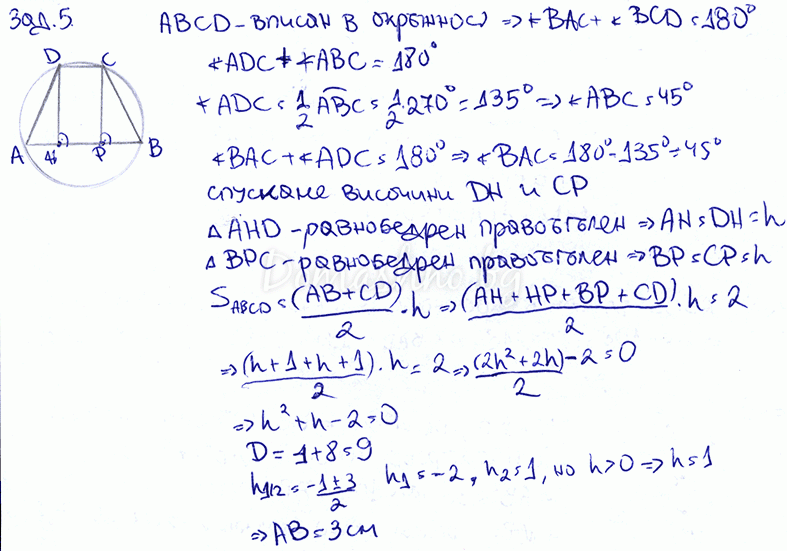 Зад.5.
ABCD-вписан в окръжност => ∢BAC + ∢BCD = 180°
∢ADC + ∢ABC = 180°
∢ADC = 1/2 ABC = 1/2 . 270° = 135° => ∢ABC = 45°
∢BAC + ∢ADC = 180° => ∢BAC = 180° - 135° = 45°
спускаме височини DH и CP
△AHD - равнобедрен правоъгълен => AH = DH = h
△BPC - равнобедрен правоъгълен => BP = CP = h
S ABCD = (AB+CD)/2 . h => (AH + HP + BP + CD)/2 . h = 2
=> (h + 1 + h + 1)/2 . h = 2 => (2h² + 2h)/2 - 2 = 0
=> h² + h - 2 = 0
D = 1 + 8 = 9
h1/2 = -1±3/2 h1 = -2, h2 = 1, но h > 0 => h = 1
=> AB = 3 см
D C
A H P B